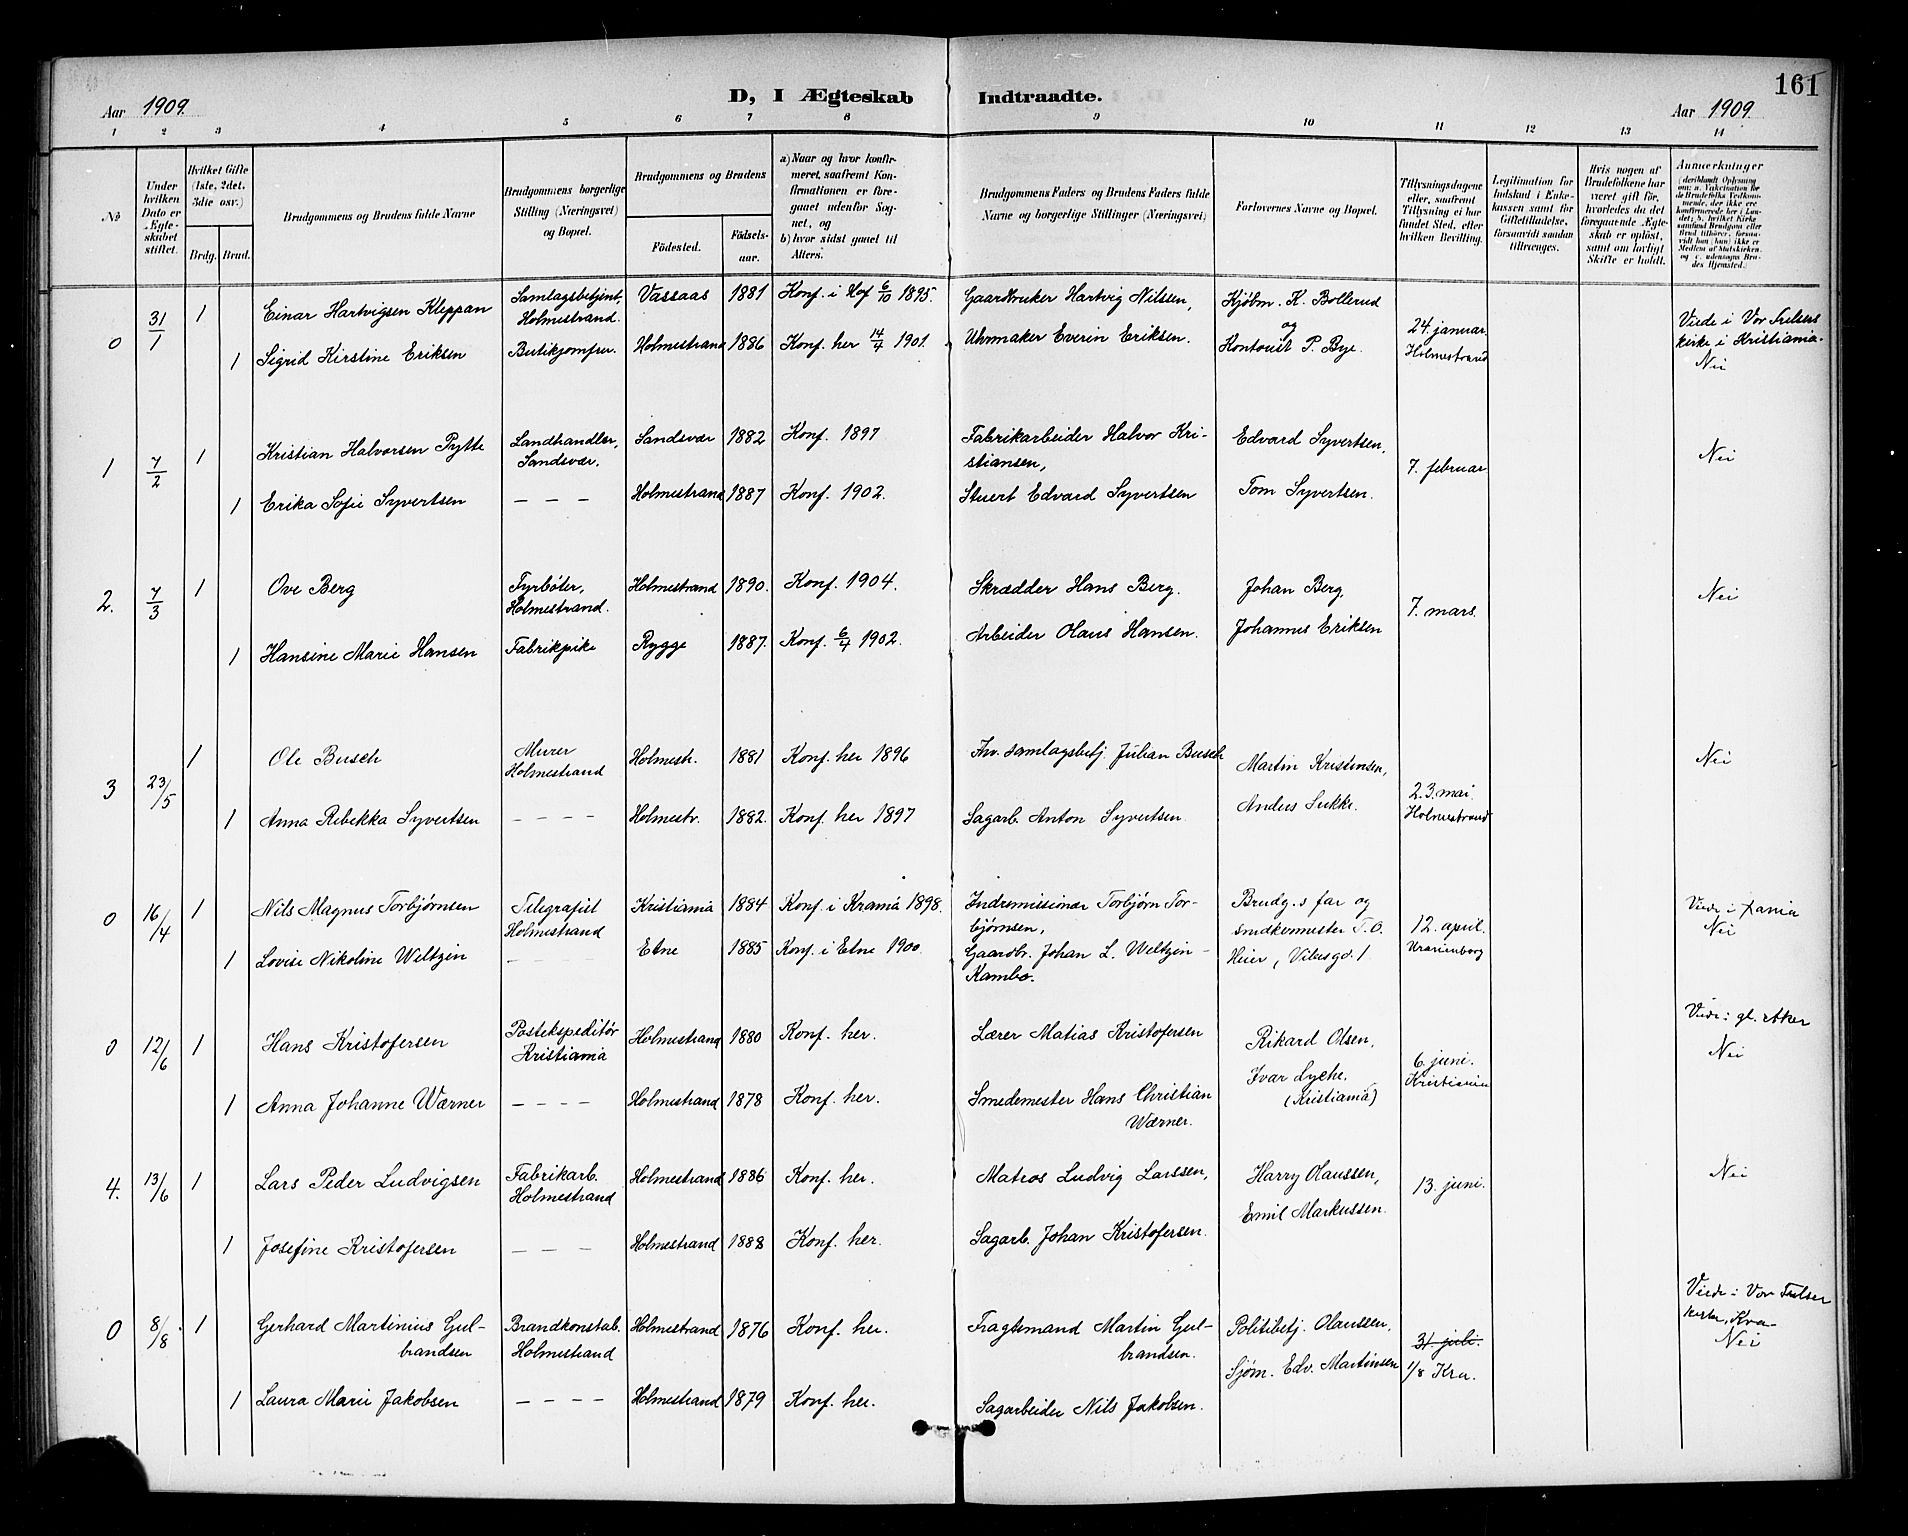 161
Aar 1909. D, I Ægteskab Indtraadte. Aar 1909.
1 2 3 4 5 6 7 8 9 10 11 12 13 14
No
Under hvilken Dato er Ægteskabet stiftet.
Hvilket Gifte (1ste, 2det, 3die osv.)
Brdg. Brud.
Brudgommens og Brudens fulde Navne
Brudgommens borgerlige Stilling (Næringsvei) og Bopæl.
Brudgommens og Brudens
Födested. Födselsaar.
a) Naar og hvor konfirmeret, saafremt Konfirmationen er foregaaet udenfor Sognet, og
b) hvor sidst gaaet til Alters.
Brudgommens Faders og Brudens Faders fulde Navne og borgerlige Stillinger (Næringsvei)
Forlovernes Navne og Bopæl.
Tillysningsdagene eller, saafremt Tillysning ei har fundet Sted, efter hvilken Bevilling.
Legitimation for Indskud i Enkekassen samt for Giftetilladelse, forsaavidt saadan tiltrænges.
Hvis nogen af Brudefolkene har været gift för, hvorledes da det foregaaende Ægteskab er oplöst, samt om lovligt Skifte er holdt.
Anmærkninger
(deriblandt Oplysning om: a. Vakcination for de Brudefolks Vedkommende, der ikke ere konfirmerede her i Landet; b. hvilket Kirkesamfund Brudgom eller Brud tilhörer, forsaavidt han (hun) ikke er Medlem af Statskirken, og c. udensogns Brudes Hjemsted.)
0 31/1 1 Einar Hartvigsen Kleppan Samlagsbetjent, Holmestrand. Vassaas 1881 Konf. i Hof 6/10 1895. Gaardbruker Hartvig Nilsen, Kjøbm. K. Bollerud og 24. januar. Holmestrand Viede i Vor Frelsers kirke i Kristiania.
1 Sigrid Kirstine Eriksen Butikjomfru. Holmestrand 1886 Konf. her 14/4 1901. Uhrmaker Everin Eriksen. Kontorist P. Bye. Nei
1 7/2 1 Kristian Halvorsen Pytte Landhandler, Sandsvær. Sandsvær 1882 Konf. 1897 Fabrikarbeider Halvor Kristiansen, Edvard Syvertsen, 7. februar Nei
1 Erika Sofie Syvertsen – – – Holmestrand 1887 Konf. 1902. Stuert Edvard Syvertsen Tom Syvertsen.
2. 7/3 1 Ove Berg Fyrbøter, Holmestrand. Holmestrand 1890. Konf. 1904. Skrædder Hans Berg. Johan Berg, 7. mars. Nei
1 Hansine Marie Hansen Fabrikpike Rygge 1887. Konf. 6/4 1902. Arbeider Olaus Hansen. Johannes Eriksen
3 23/5 1 Ole Busch Murer Holmestrand Holmestr. 1881 Konf. her 1896 Fhv. samlagsbetj. Julian Busch Martin Kristensen, 23. mai. Holmestrand Nei
1 Anna Rebekka Syvertsen – – – – Holmestr. 1882. Konf. her 1897 Sagarb. Anton Syvertsen Anders Sukke.
0 16/4 1 Nils Magnus Torbjørnsen Telegrafist Holmestrand Kristiania 1884 Konf. i Krania 1898. Indremissionær Torbjørn Torbjørnsen, Brudg.s far og smedkermester T. O. Heier, Vibesgd. 1 12. april. Uranienborg Viede i Xania Nei
1 Lovise Nikoline Weltzin – – – – Etne 1885 Konf. i Etne 1900. Gaardbr. Johan L. Weltzin-Kambo.
0 12/6 1 Hans Kristofersen Postekspeditør Kristiania Holmestrand 1880 Konf. her. Lærer Matias Kristofersen Rikard Olsen, 6. juni. Kristiania Viede i gl. Aker Nei
1 Anna Johanne Wærner – – – – Holmestrand 1878 Konf. her. Smedemester Hans Christian Wærner. Ivar Lyche. (Kristiania)
4. 13/6 1 Lars Peder Ludvigsen Fabrikarb. Holmestrand Holmestrand 1886 Konf. her. Matros Ludvig Larssen, Harry Olaussen, 13. juni. Nei
1 Josefine Kristofersen – – – – Holmestrand 1888 Konf. her. Sagarb. Johan Kristofersen. Emil Markussen.
0 8/8 1 Gerhard Martinius Gulbrandsen Brandkonstab. Holmestrand Holmestrand 1876 Konf. her. Fragtemand Martin Gulbrandsen. Politibetj. Olaussen, 31. juli. 1/8 Kra. Viede i Vor Frelser kirke, Kra– Nei
1 Laura Marie Jakobsen – – – – Holmestrand 1879 Konf. her. Sagarbeider Nils Jakobsen. Sjøm. Edv. Martinsen